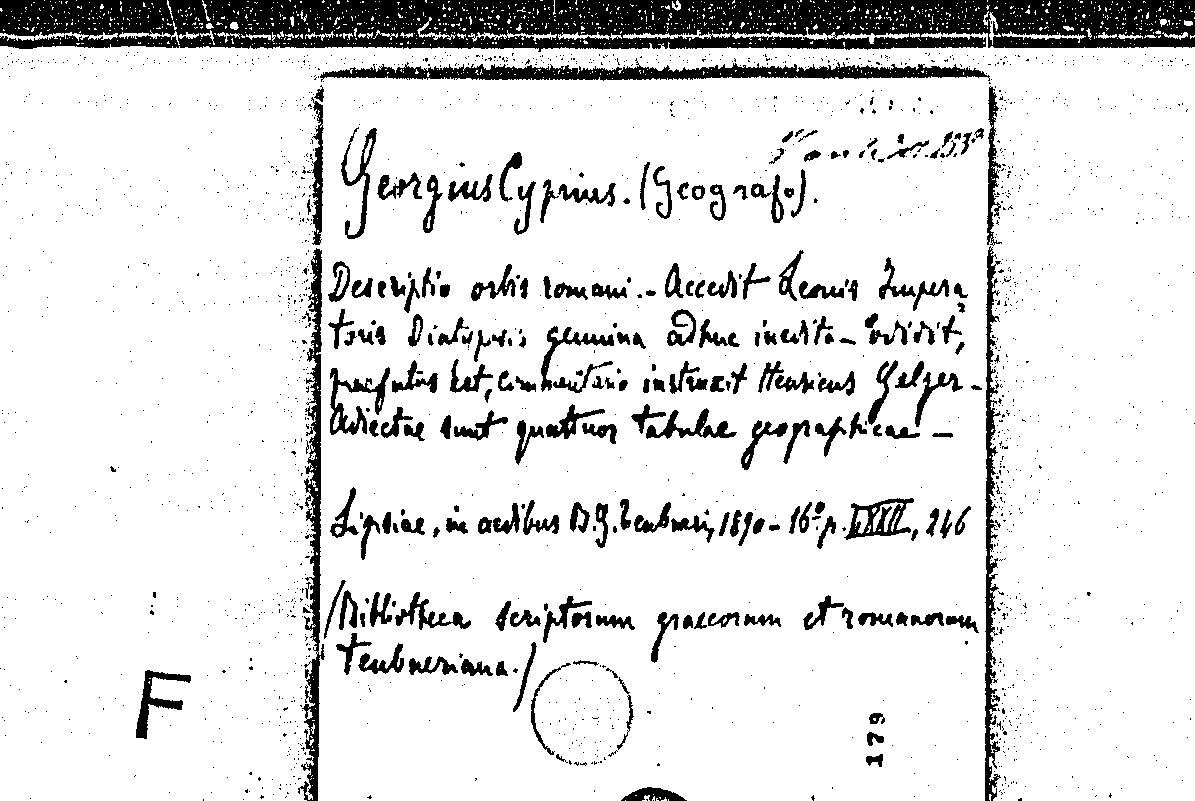 Georgius Cyprius. (Geografo).
Descriptio orbis romani.- Accedit Leonis Impera
toris Diatyposis genuina adhuc inedita - Edidit,
praefatus est, commentario instruxit Henricus Gelzer -
Adiectae sunt quattuor tabulae geographicae -
Lipsiae, in aedibus B.G. Teubneri, 1890 - 16º p. LXXII, 246
(Bibliotheca scriptorum graecorum et romanorum
teubneriana.)
F
179